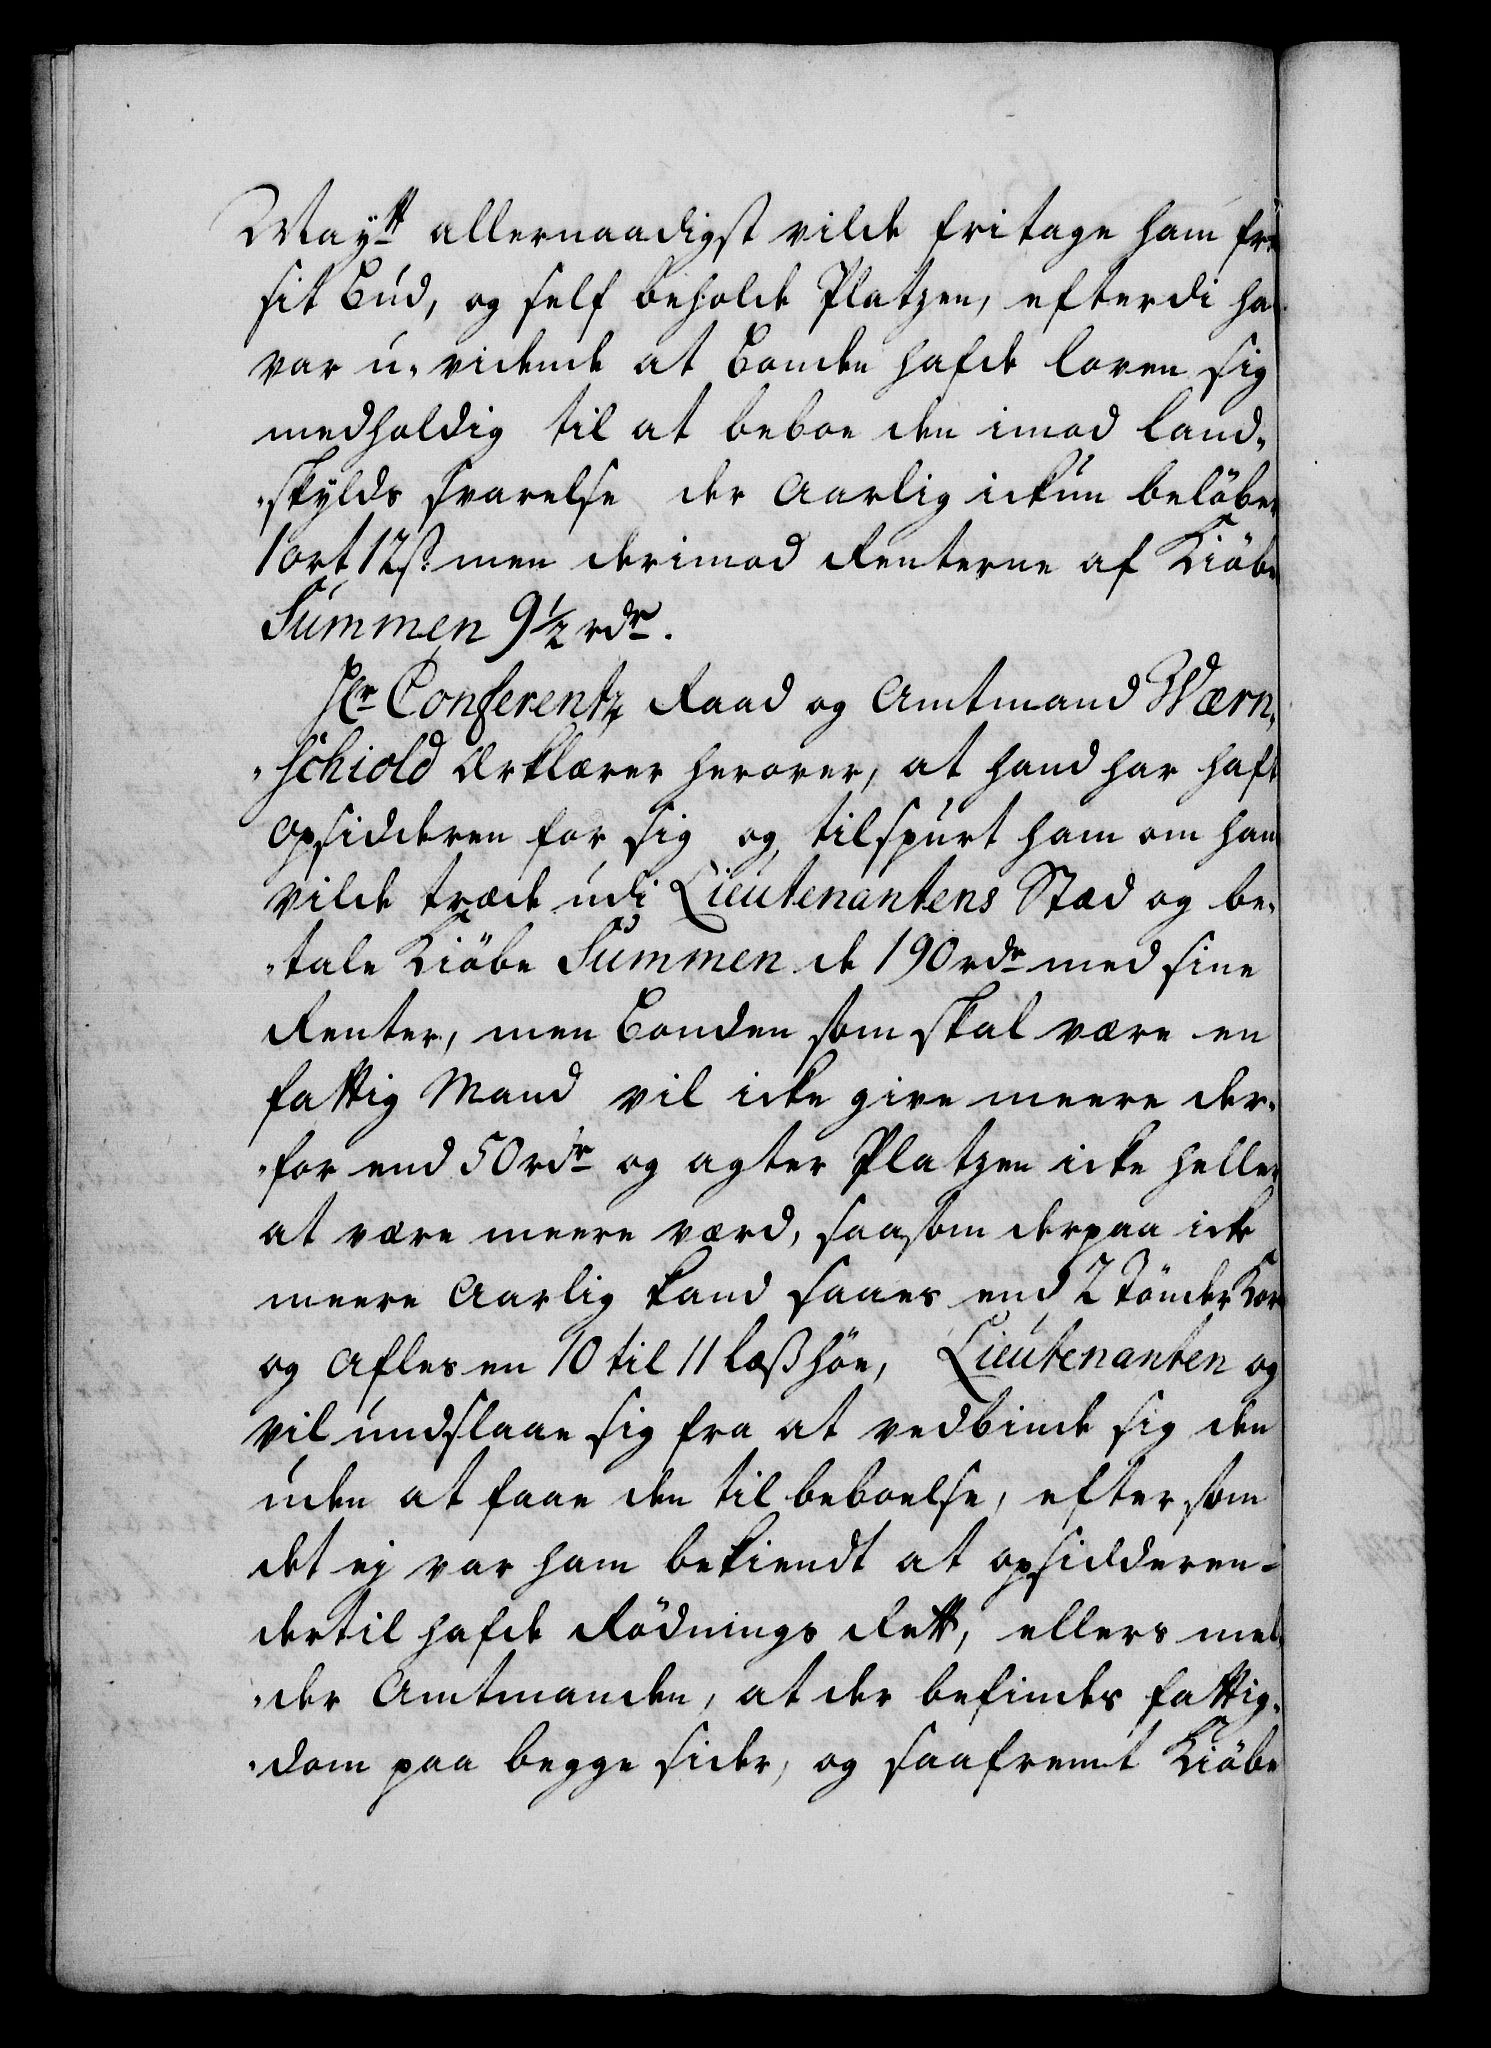 Mayꞏtt allernaadigst vilde fritage ham fra
sit Bud, og self beholde Platzen, efterdi ha
var u-vidende at Bonden hafde loven sig
medholdig til at beboe den imod Land-
-skylds svarelse der Aarlig ickun beløber
1 ort 12 s. men derimod Renterne af Kiøbe
Summen 9½ rdr.
Hr Conferentz Raad og Amtmand Wærn-
-schiold Erklærer herover, at hand har haft
opsidderen for sig og tilspurt ham om hand
vilde træde udi Lieutenantens Stæd og be-
-tale Kiøbe Summen de 190 rdr med sine
Renter, men Bonden som skal være en
fattig Mand vil icke give meere der-
-for end 50 rdr og agter Platzen icke heller
at være meere værd, saasom derpaa icke
meere Aarlig kand saaes end 2 Tønder Kor
og Afles en 10 til 11 læß høe, Lieutenanten og
vil undslaae sig fra at vedbinde sig den
uden at faae den til beboelse, efter som
det ej var ham bekiendt at opsidderen
dertil hafde Rødnings Rett, ellers mel-
-der Amtmanden, at der befindes fattig-
-dom paa begge sider, og saafremt Kiøbe